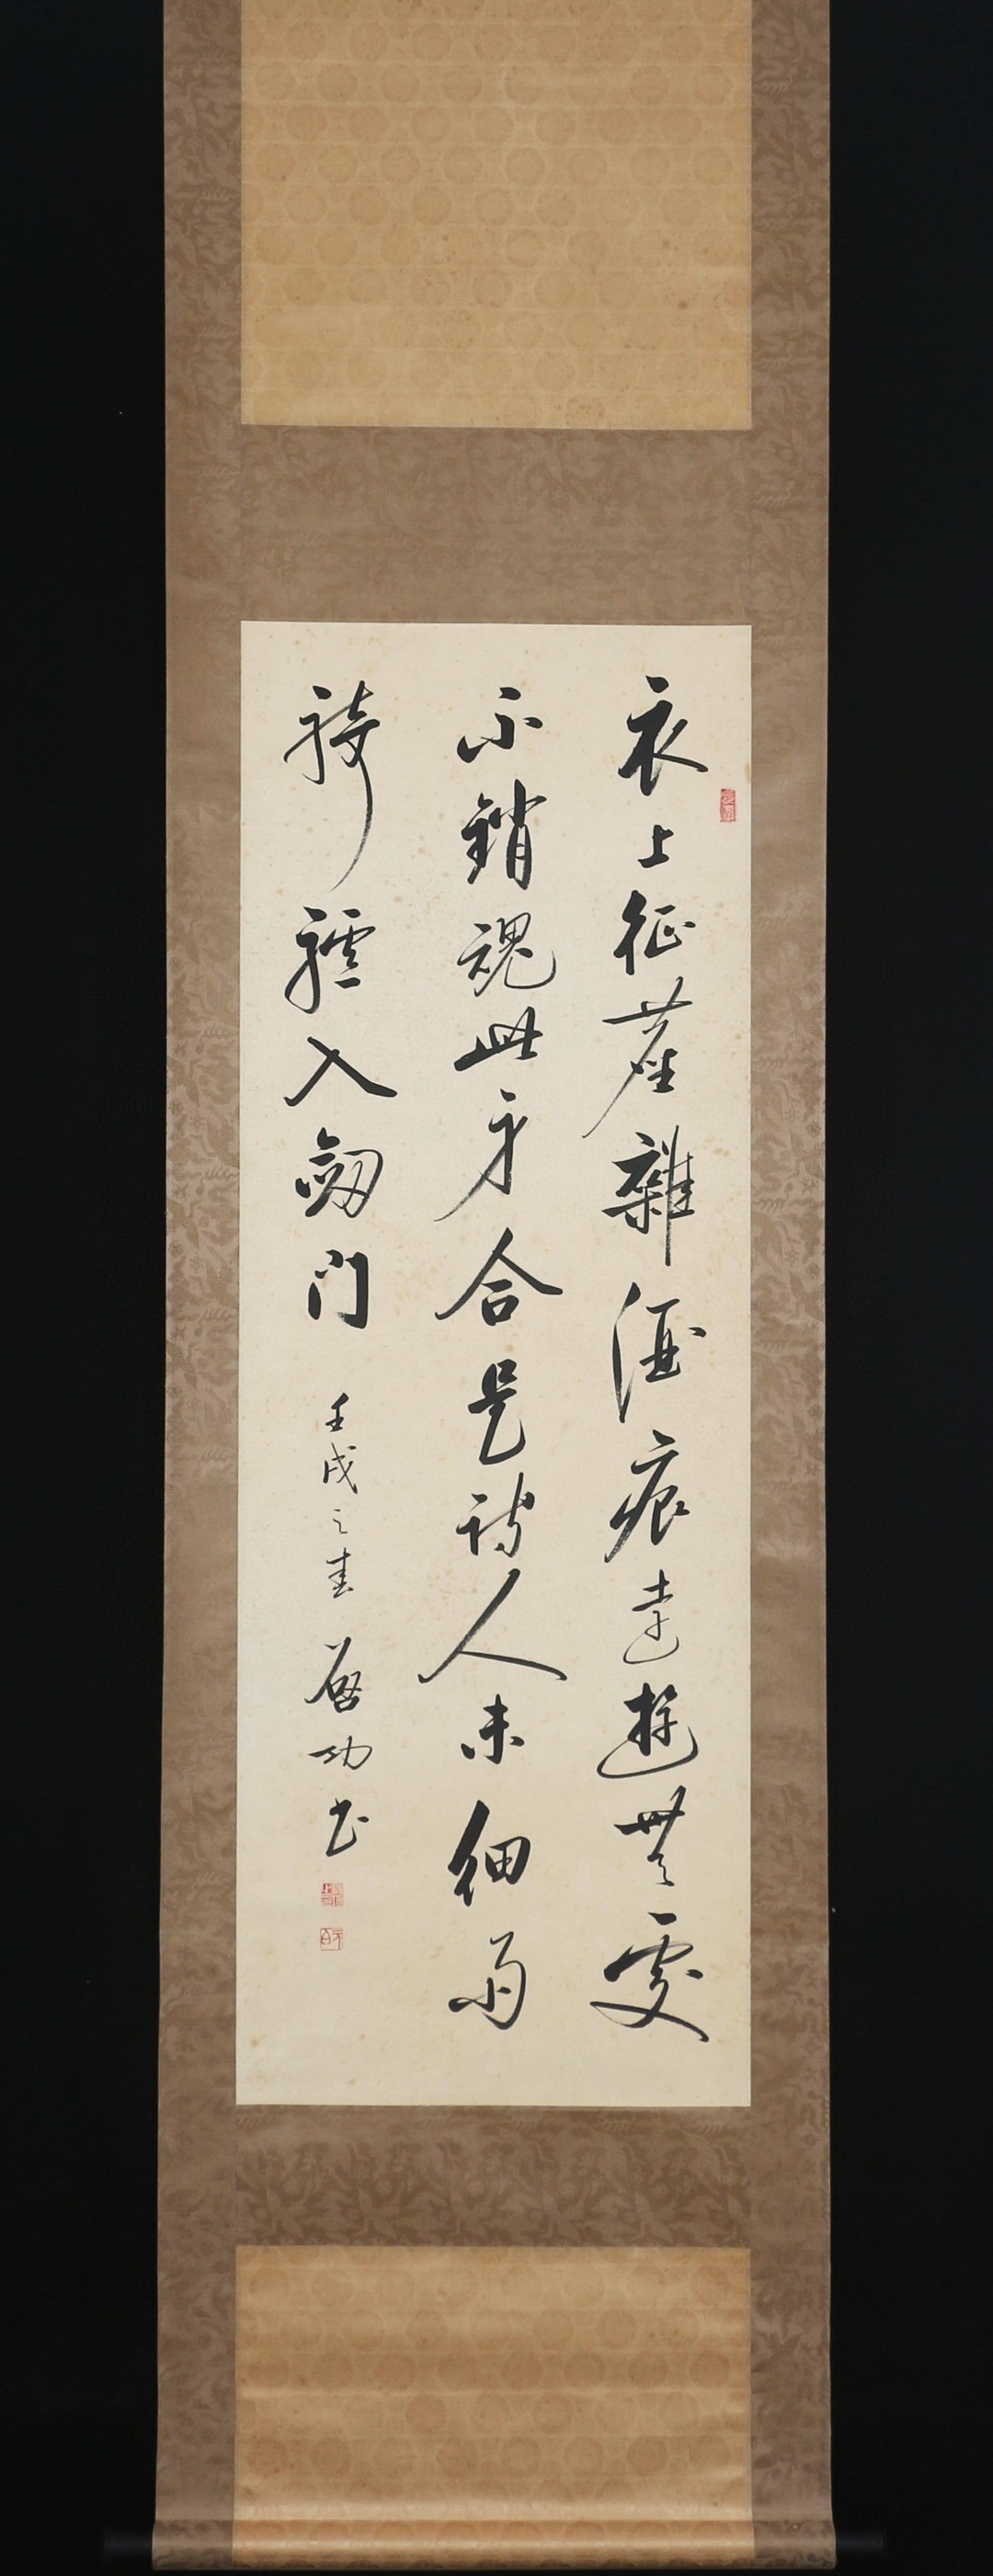 衣上征塵雜酒痕遠遊無處
不銷魂此身合是詩人未細雨
騎驢入劍门
壬戌之春
啓功书